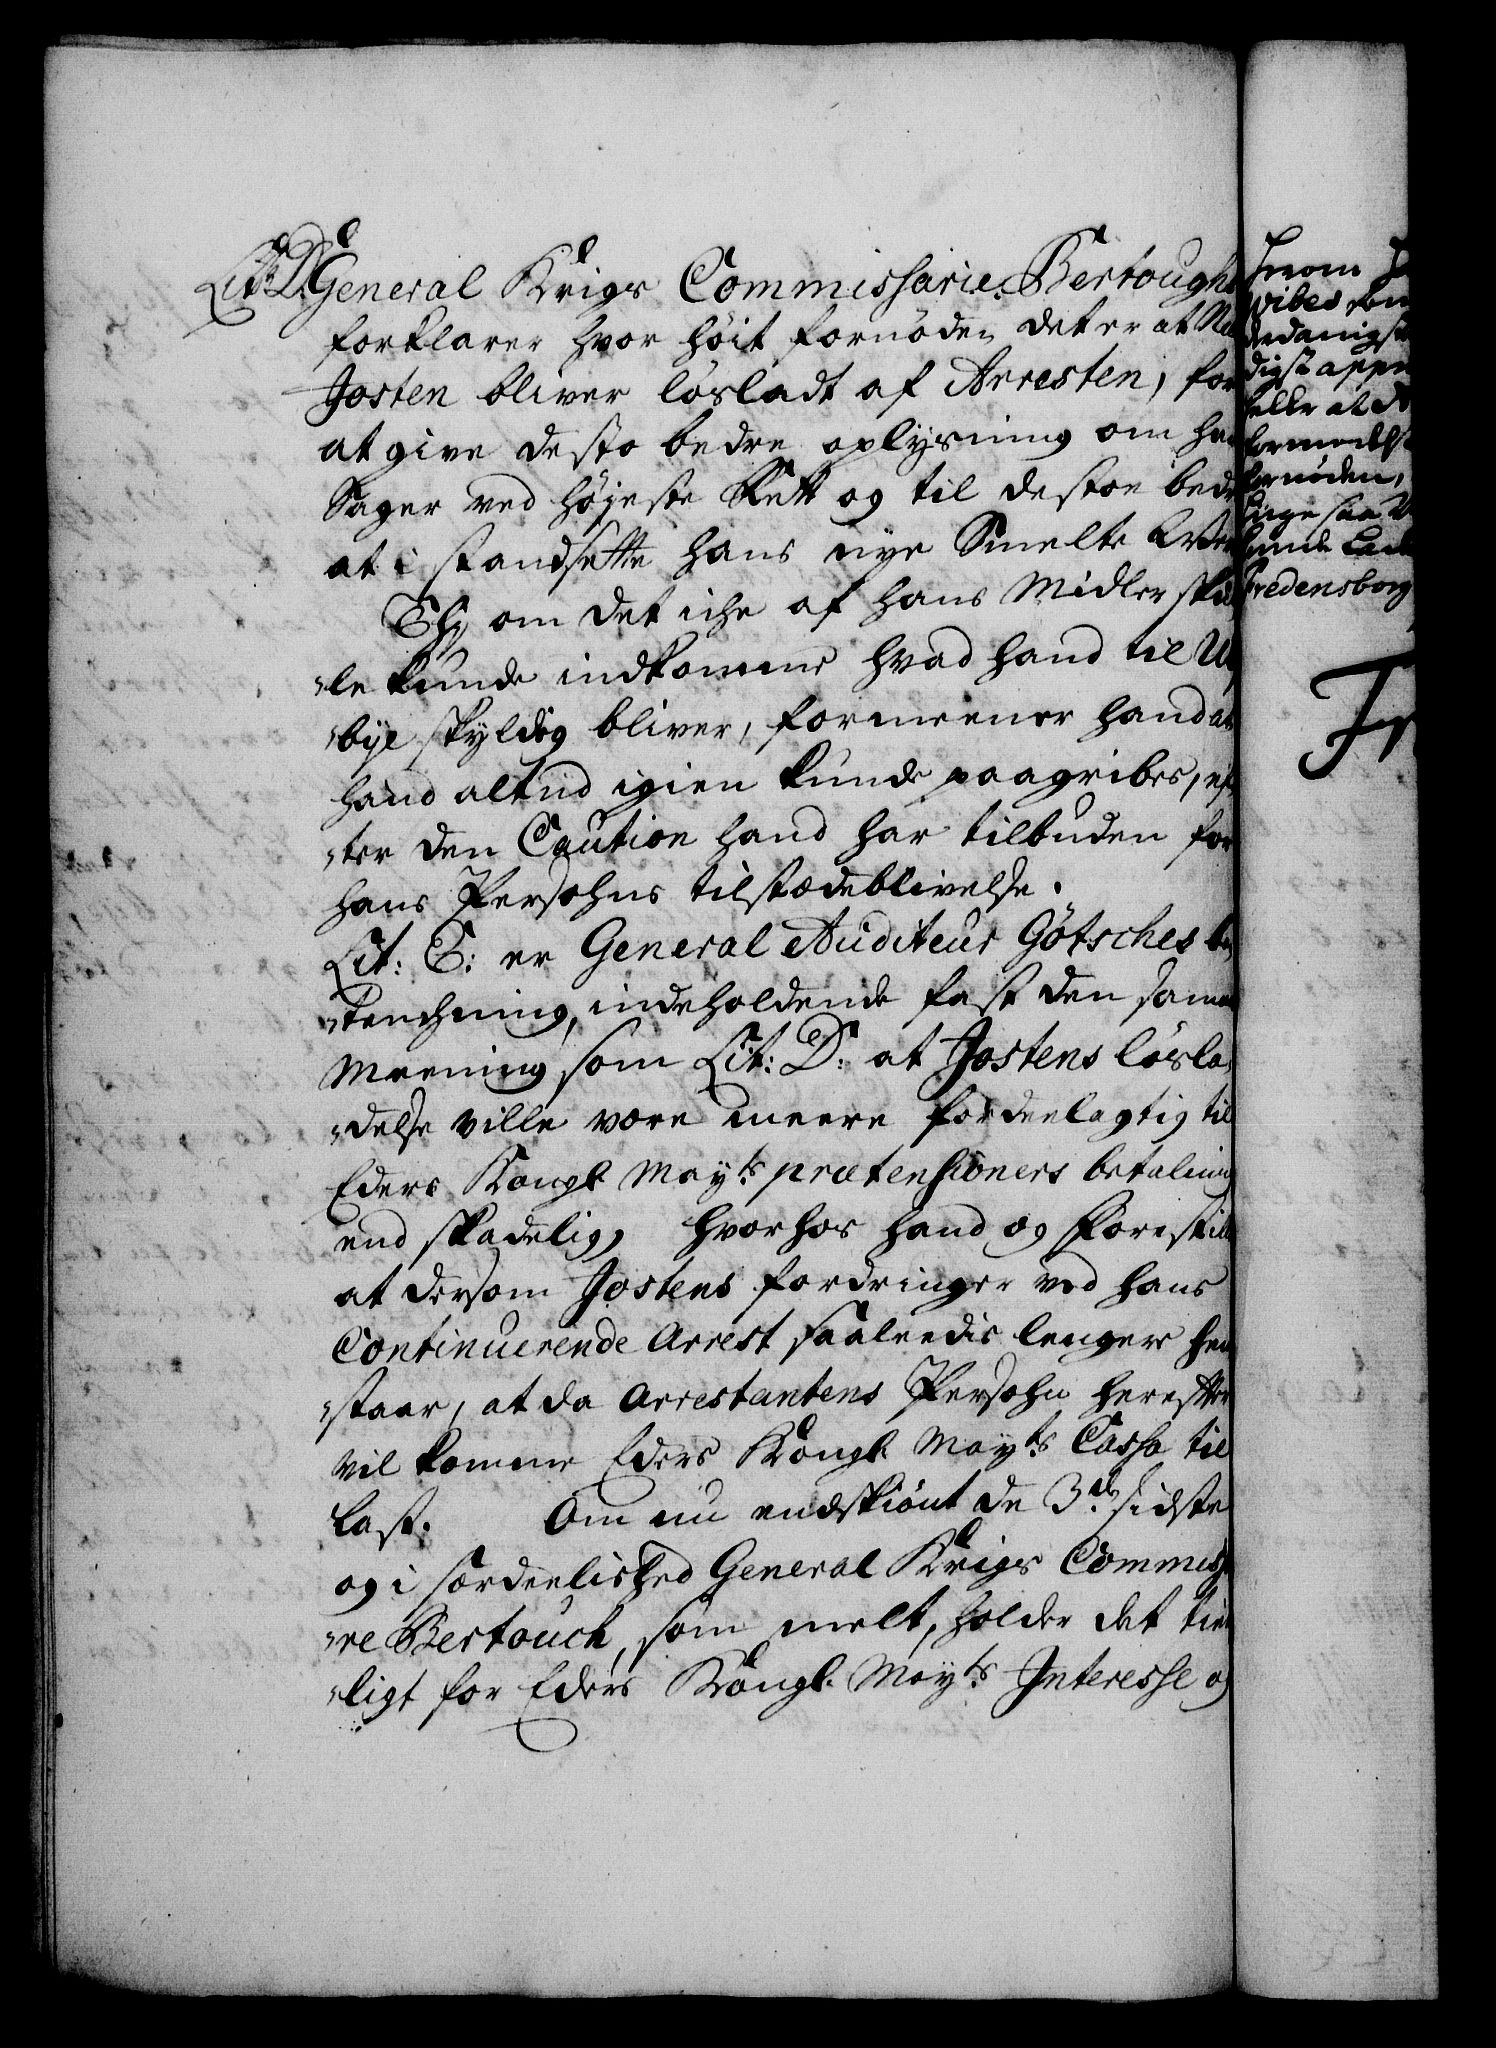 Lit: D: General Krigs Commissarie Bertough
forklarer hvor höit fornöden det er at
Josten bliver lösladt af Arresten, for
at give desto bedre oplysning om
Sager ved höjeste Rett og til destoe bedr
at i standsette hans nye Smelte
om det iche af hans Midler skul
"le kunde indkomme hvad hand til
"bye skyldig bliver, formeener hand at
hand altid igien kunde paagribes, ef
"ter den Caution hand har tilbuden for
hans Persohns tilstædeblivelse.
Lit: E: er General Auditeur Götsches be
"tenchning, indeholdende fast den samme
Meening som Lit: D: at Jostens lösla
"delse ville være meere fordeelagtig til
Eders Kongl May.ts prætensioners betaling
end skadelig, hvorhos hand og forestill
at dersom Jostens fordringer ved hans
Continuerende Arrest saaleedis lenger hen
"staar, at da Arrestantens Persohn herefter
vil komme Eders Kongl. May.ts Cassa til
last. Om nu endskiönt de 3.de sidste
og i særdeelished General Krigs Commissa
"re Bertouch, som melt, holder det tien
"ligt for Eders Kongl. May.ts Interesse og
hvom
vibes som
dedanigst
digst appr
heller at
formedelst
fornöden,
lige saa
hende Lad
Fredensborg
Fr